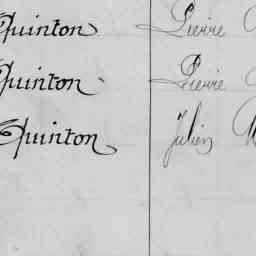 Quinton Pierre
Quinton Pierre
Quinton Julien